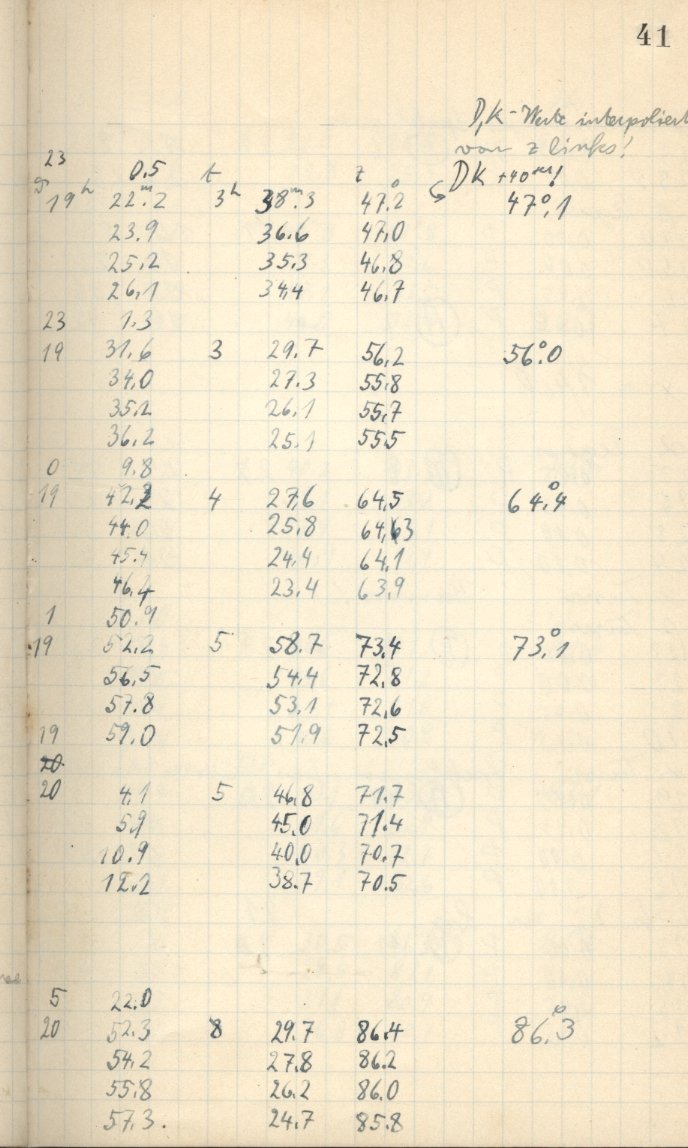 41
D,K-Werte interpoliert
von z links!
23 0,5 t z DK +40m!
19h 22m.2 3h 38m.3 47°.2 47°.1
23.9 36.6 47,0
25.2 35.3 46.8
26.1 34.4 46.7
23 1.3
19 31.6 3 29.7 56,2 56°.0
34.0 27.3 55.8
35.2 26.1 55.7
36.2 25.1 555
0 9.8
19 42.2 4 27,6 64,5 64°.4
44.0 25.8
45.4 24.4 64.1
46.4 23.4 63.9
1 50.9
19 52.2 5 58.7 73.4 73°.1
56.5 54.4 72,8
57.8 53.1 72,6
19 59.0 51.9 72,5
20
20 4.1 5 46.8 71.7
5.9 45.0 71.4
10.9 40.0 70.7
12.2 38.7 70.5
5 22.0
20 52.3 8 29.7 86.4 86°.3
54.2 27.8 86.2
55.8 26.2 86.0
57.3. 24.7 85.8